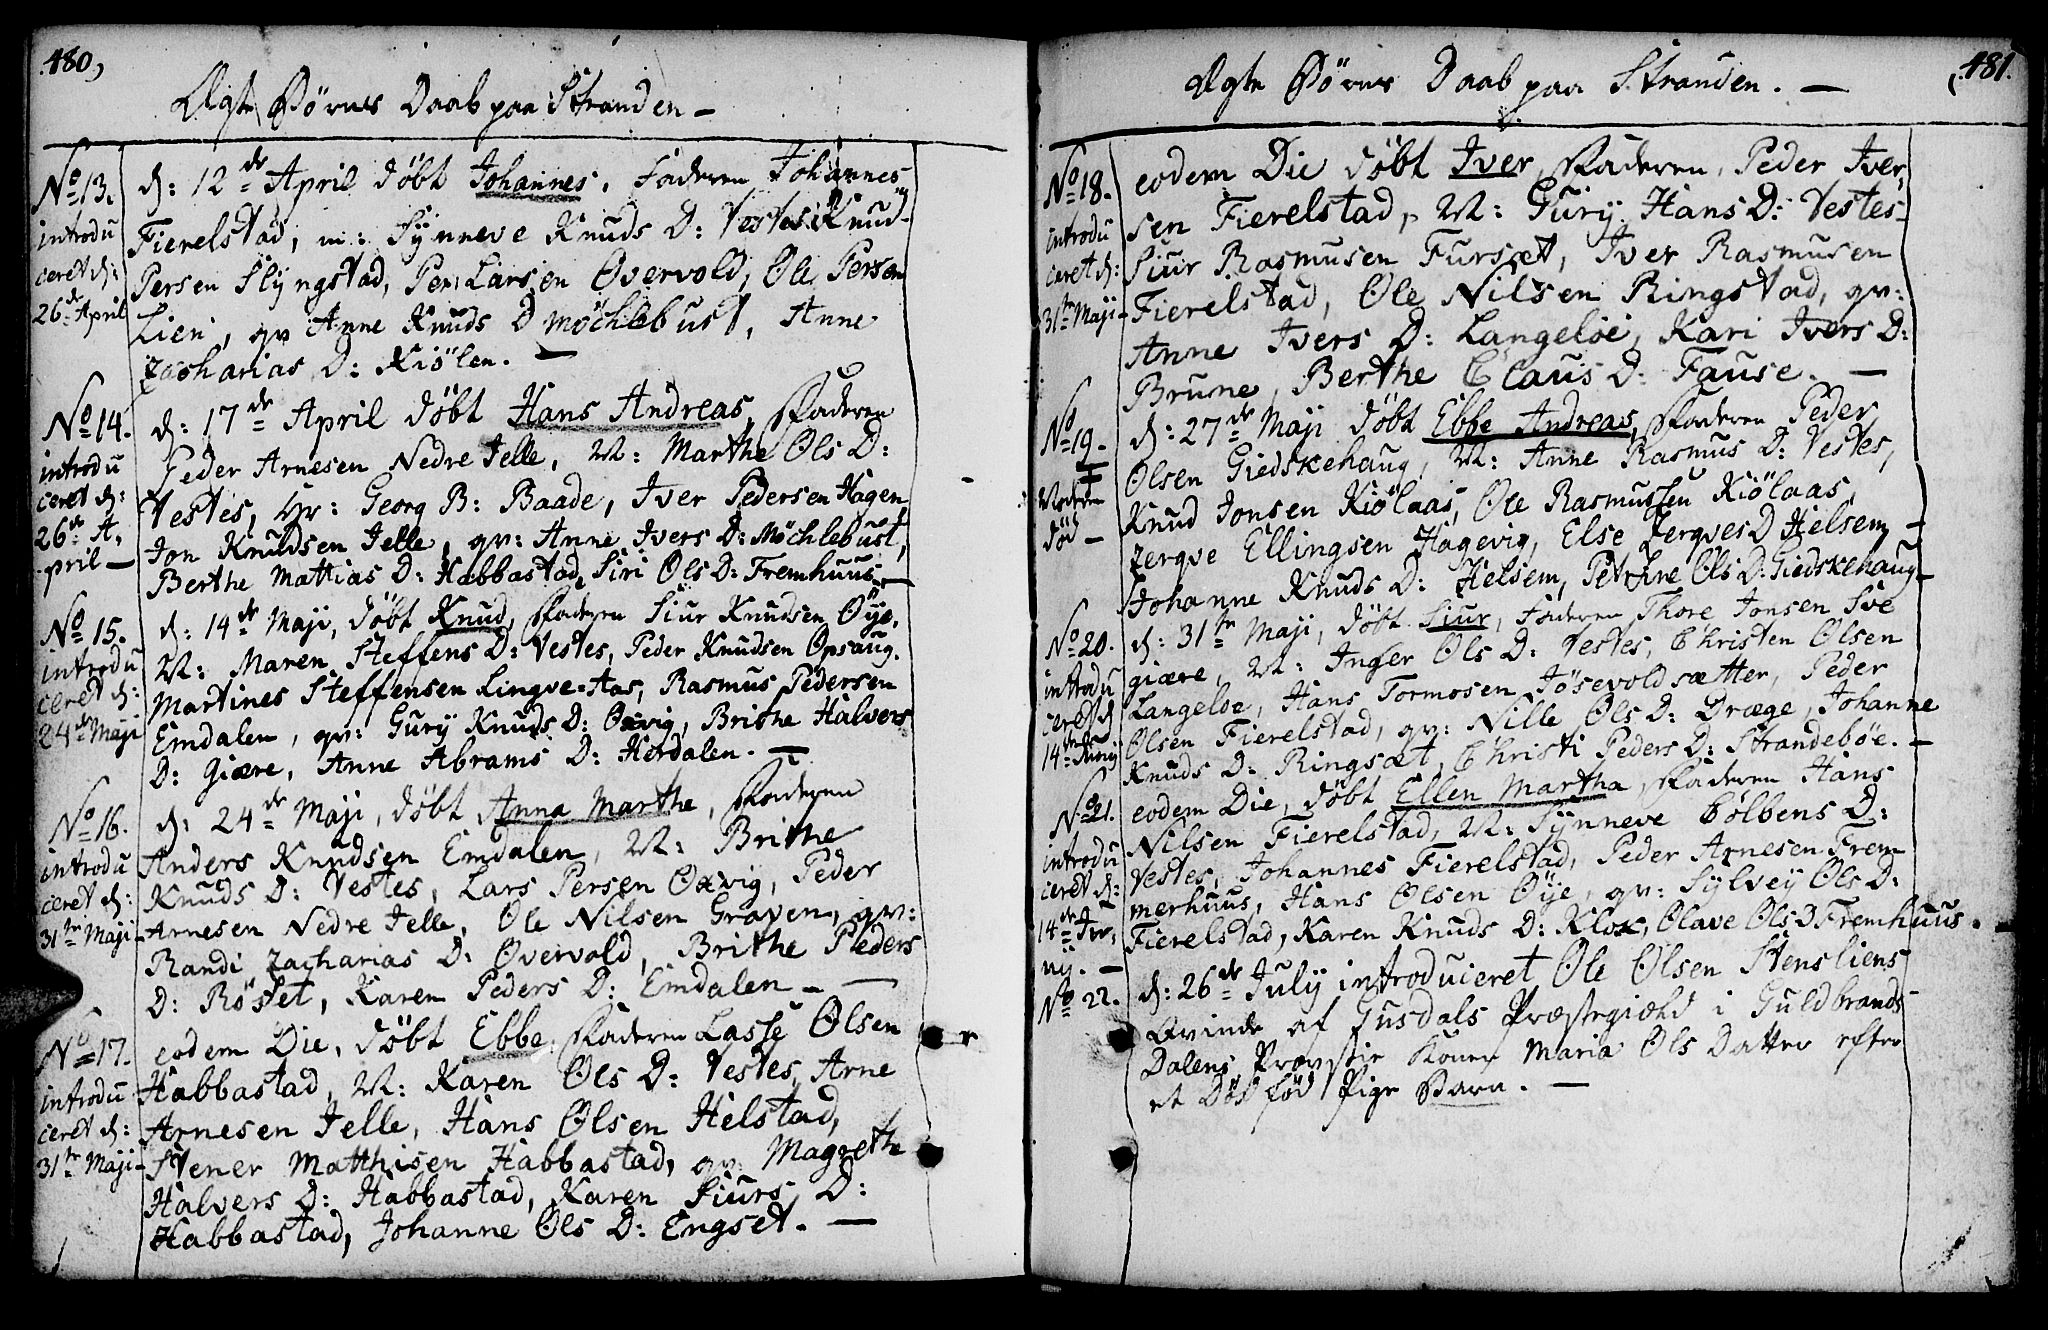 480,
Ægte Børnes Daab paa Stranden –
No 13.
introdu
ceret d:
26de April
d: 12de April döbt Johannes, Faderen Johannes
Fierelstad, m: Synneve Knuds D: Vestes: Knud
Persen Slyngstad, Per Larsen Overvold, Ole Persen
Lien, qv Anne Knuds D Möchlebust, Anne
Zacharias D: Kiölen. –
No 14.
introdu
ceret d:
26de A,
pril –
d: 17de April döbt Hans Andreas, Faderen
Peder Arnesen Nedre Jelle, M: Marthe Ols D:
Vestes, Hr: Georg B: Baade, Iver Pedersen Hagen,
Jon Knudsen Jelle, qv: Anne Ivers D: Möchlebust,
Berthe Mattias D: Habbastad, Siri Ols D: Fremhuus. –
No 15.
introdu
ceret d:
24de Maji
d: 14de Maji, döbt Knud, Faderen Siur Knudsen Öye,
M: Maren Steffens D: Vestes, Peder Knudsen Opsaug.
Martines Steffensen Lingve=Aas, Rasmus Pedersen
Emdalen, qv: Gury Knuds D: Oxvig, Brithe Halvers
D: Giære, Anne Abrams D: Herdalen. –
No 16.
introdu
ceret d:
31te Maji
d: 24de Maji, döbt Anna Marthe, Faderen
Anders Knudsen Emdalen, M: Brithe
Knuds D: Vestes, Lars Persen Oxvig, Peder
Arnesen Nedre Jelle, Ole Nilsen Graven, qv:
Randi Zacharias D: Overvold, Brithe Peders
D: Röset, Karen Peders D: Emdalen – –
No 17.
introdu
ceret d:
31te Maji
eodem Die, döbt Ebbe, Faderen Lasse Olsen
Habbastad, M: Karen Ols D: Vestes, Arne
Arnesen Jelle, Hans Olsen Helstad,
Svener Matthisen Habbastad, qv: Magrethe
Halvers D: Habbastad, Karen Siurs D:
Habbastad, Johanne Ols D: Engset. –
481.
Ægte Börnes Daab paa Stranden. –
No 18.
introdu
ceret d:
31te Maji
eodem Die döbt Iver, Faderen, Peder Iver,
sen Fierelstad, M: Gury Hans D: Vestes
Siur Rasmusen Furset, Iver Rasmusen
Fierelstad, Ole Nilsen Ringstad, qv:
Anne Ivers D: Langeloe, Kari Ivers D:
Brune, Berthe Claus D: Fause. –
No 19.
Moderen
död –
d: 27de Maji döbt Ebbe Andreas, Faderen Peder
Olsen Giedskehaug, M: Anne Rasmus D: Vestes,
Knud Jonsen Kiölaas, Ole Rasmussen Kiölaas,
Zerqve Ellingsen Hagevig, Else Zerqves D Helsem –
Johanne Knuds D: Helsem, Petrine Ols D: Giedskehaug –
No 20.
introdu
ceret d
14de Junij
d: 31te Maji, döbt Siur, Faderen Thore Jonsen Sve
giære, M: Inger Ols D: Vestes, Christen Olsen
Langeloe, Hans Tormosen Jösevoldsætter, Peder
Olsen Fierelstad, qv: Nille Ols D: Dræge, Johanne
Knuds D: Ringsæt, Christi Peders D: Strandeböe. –
No 21.
introdu
ceret d:
14de Ju,
nij. –
eodem Die, döbt Ellen Martha, Faderen Hans
Nilsen Fierelstad, M: Synneve Colbens D:
Vestes, Johannes Fierelstad, Peder Arnesen Frem
merhuus, Hans Olsen Öye, qv: Sylvey Ols D:
Fierelstad, Karen Knuds D: Klok, Olave Ols D. Fremhuus.
No 22.
d: 26de July introduceret Ole Olsen Stensliens
Qvinde af Gusdals Præstegield i Guldbrands
Dalens Provstie Konen Maria Ols Datter efter
et Död föd Pige Barn. –